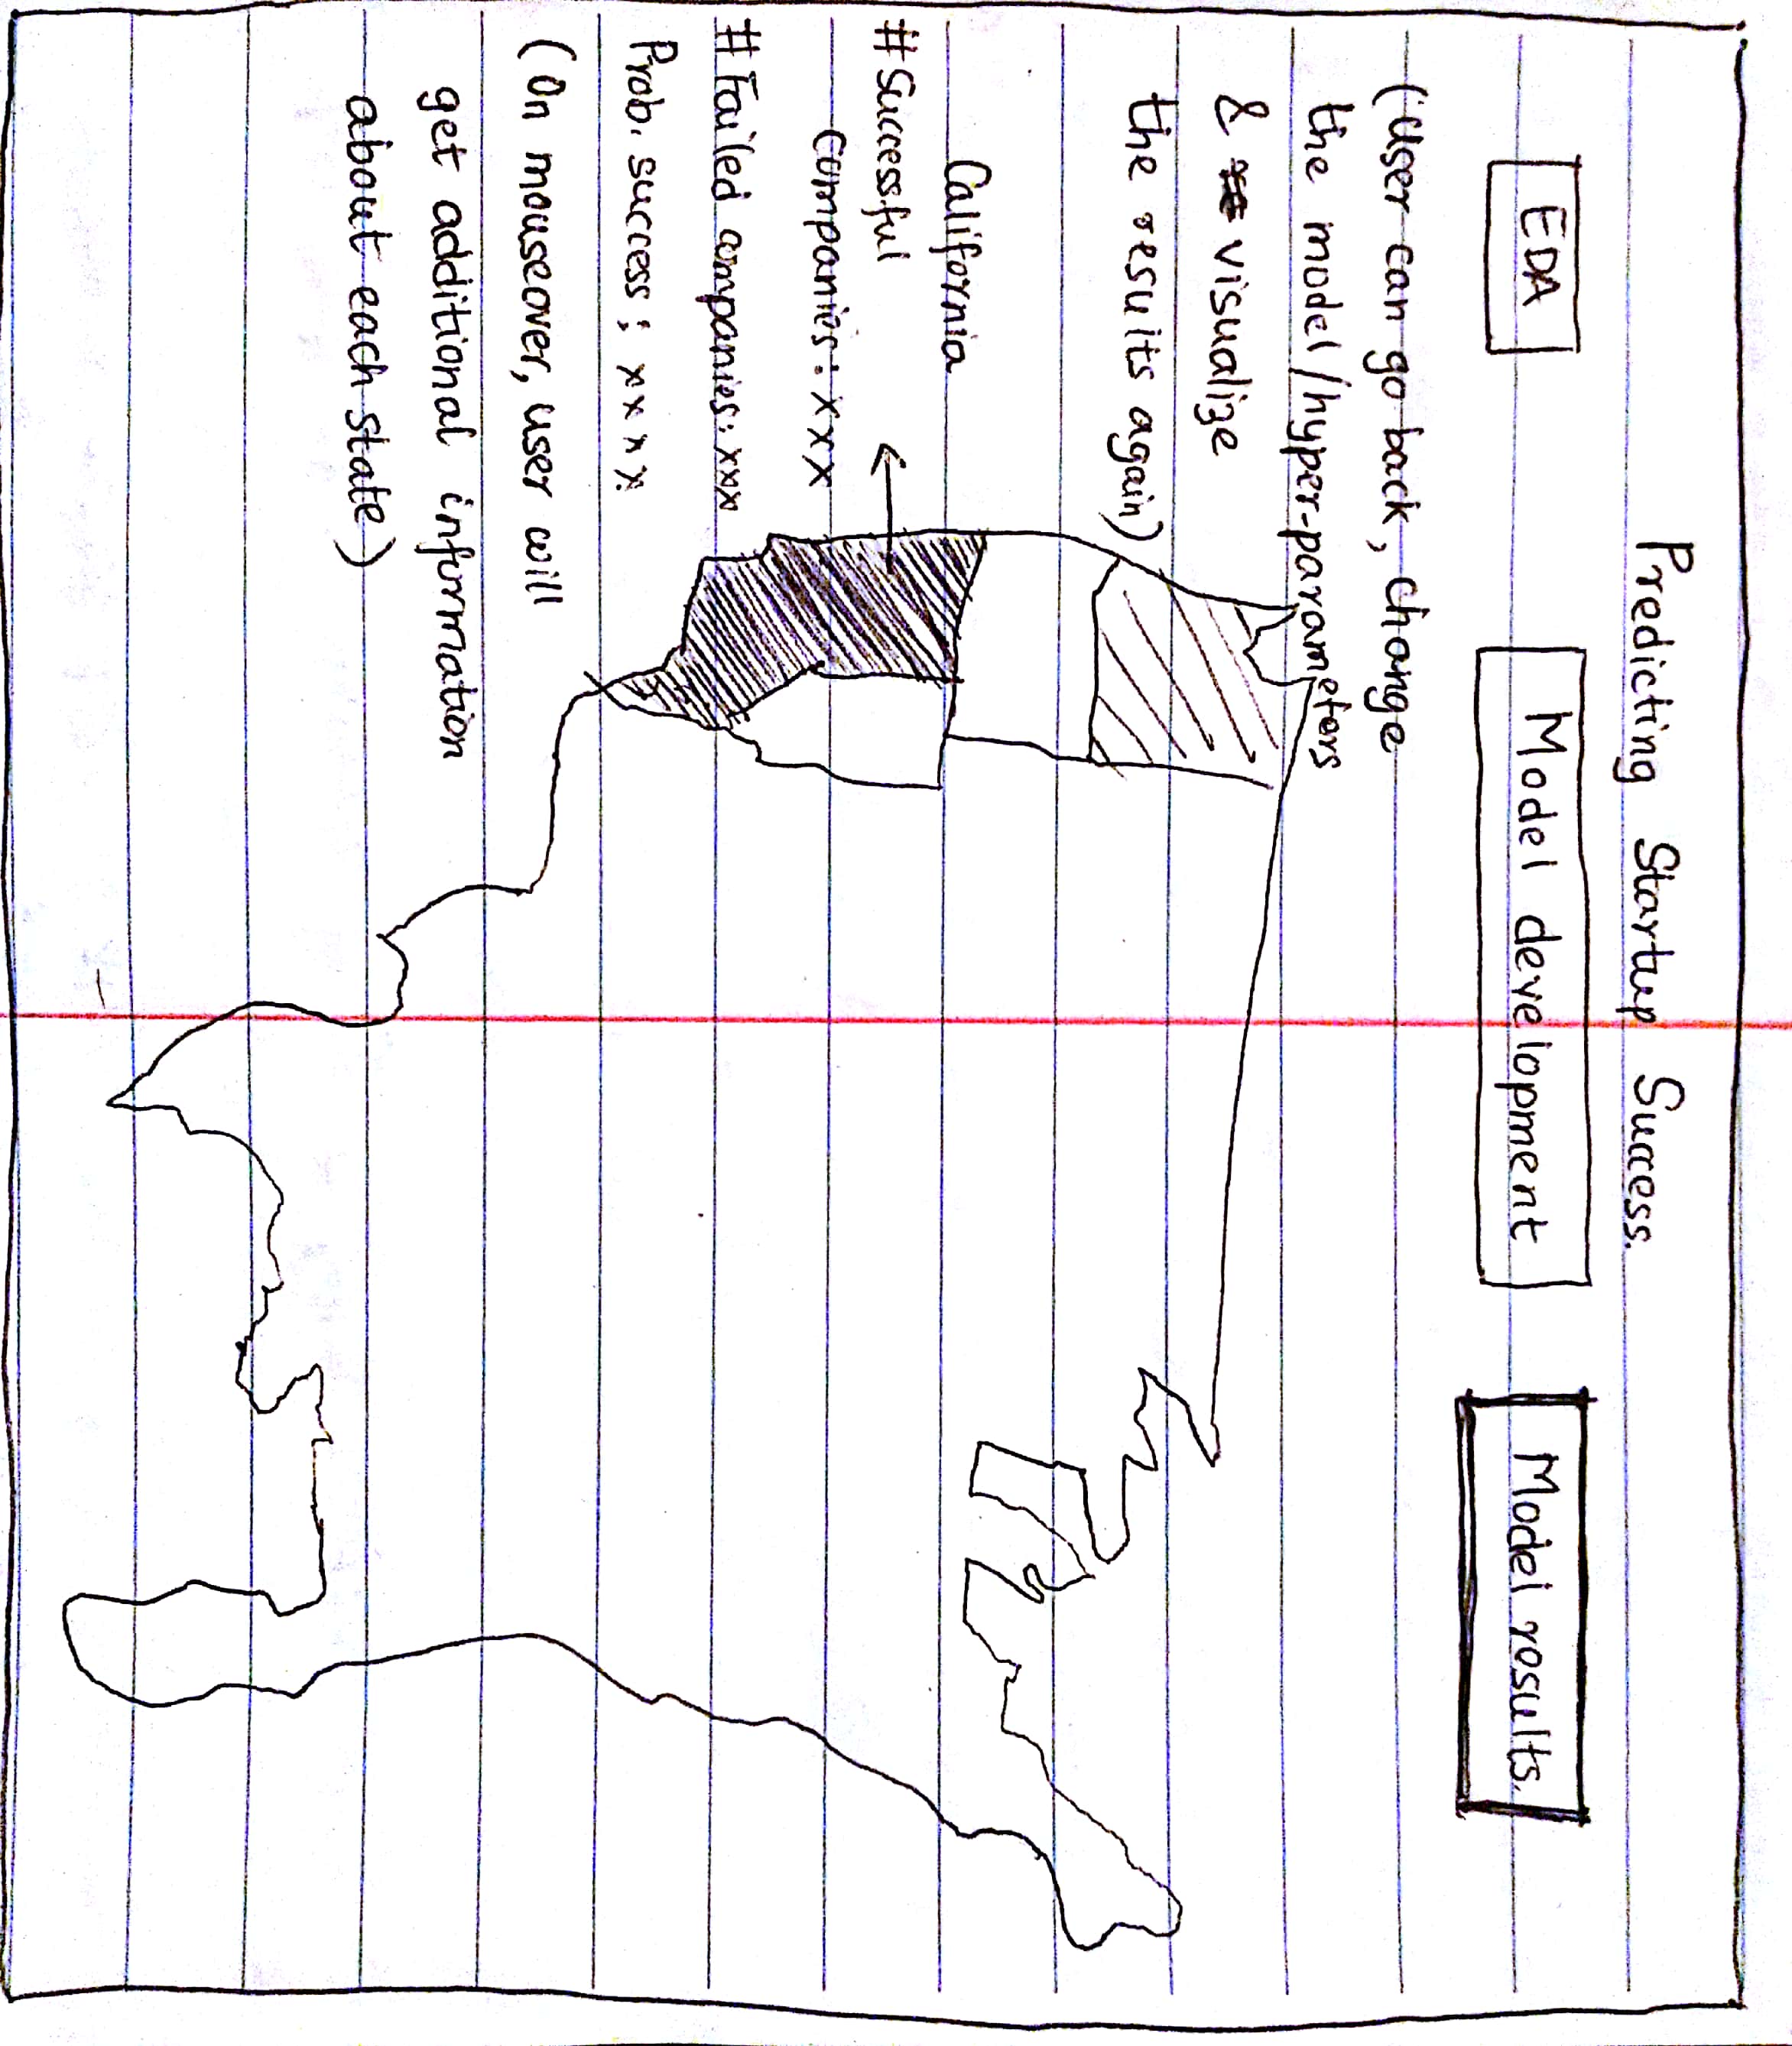 Predicting Startup Success.
EDA
Model development
Model results.
(User can go back, change
the model/hyper-parameters
& visualize
the results again)
California
# Successful
companies: xxx
# Failed companies: xxx
Prob. success: xxxx
(On mouseover, user will
get additional information
about each state)